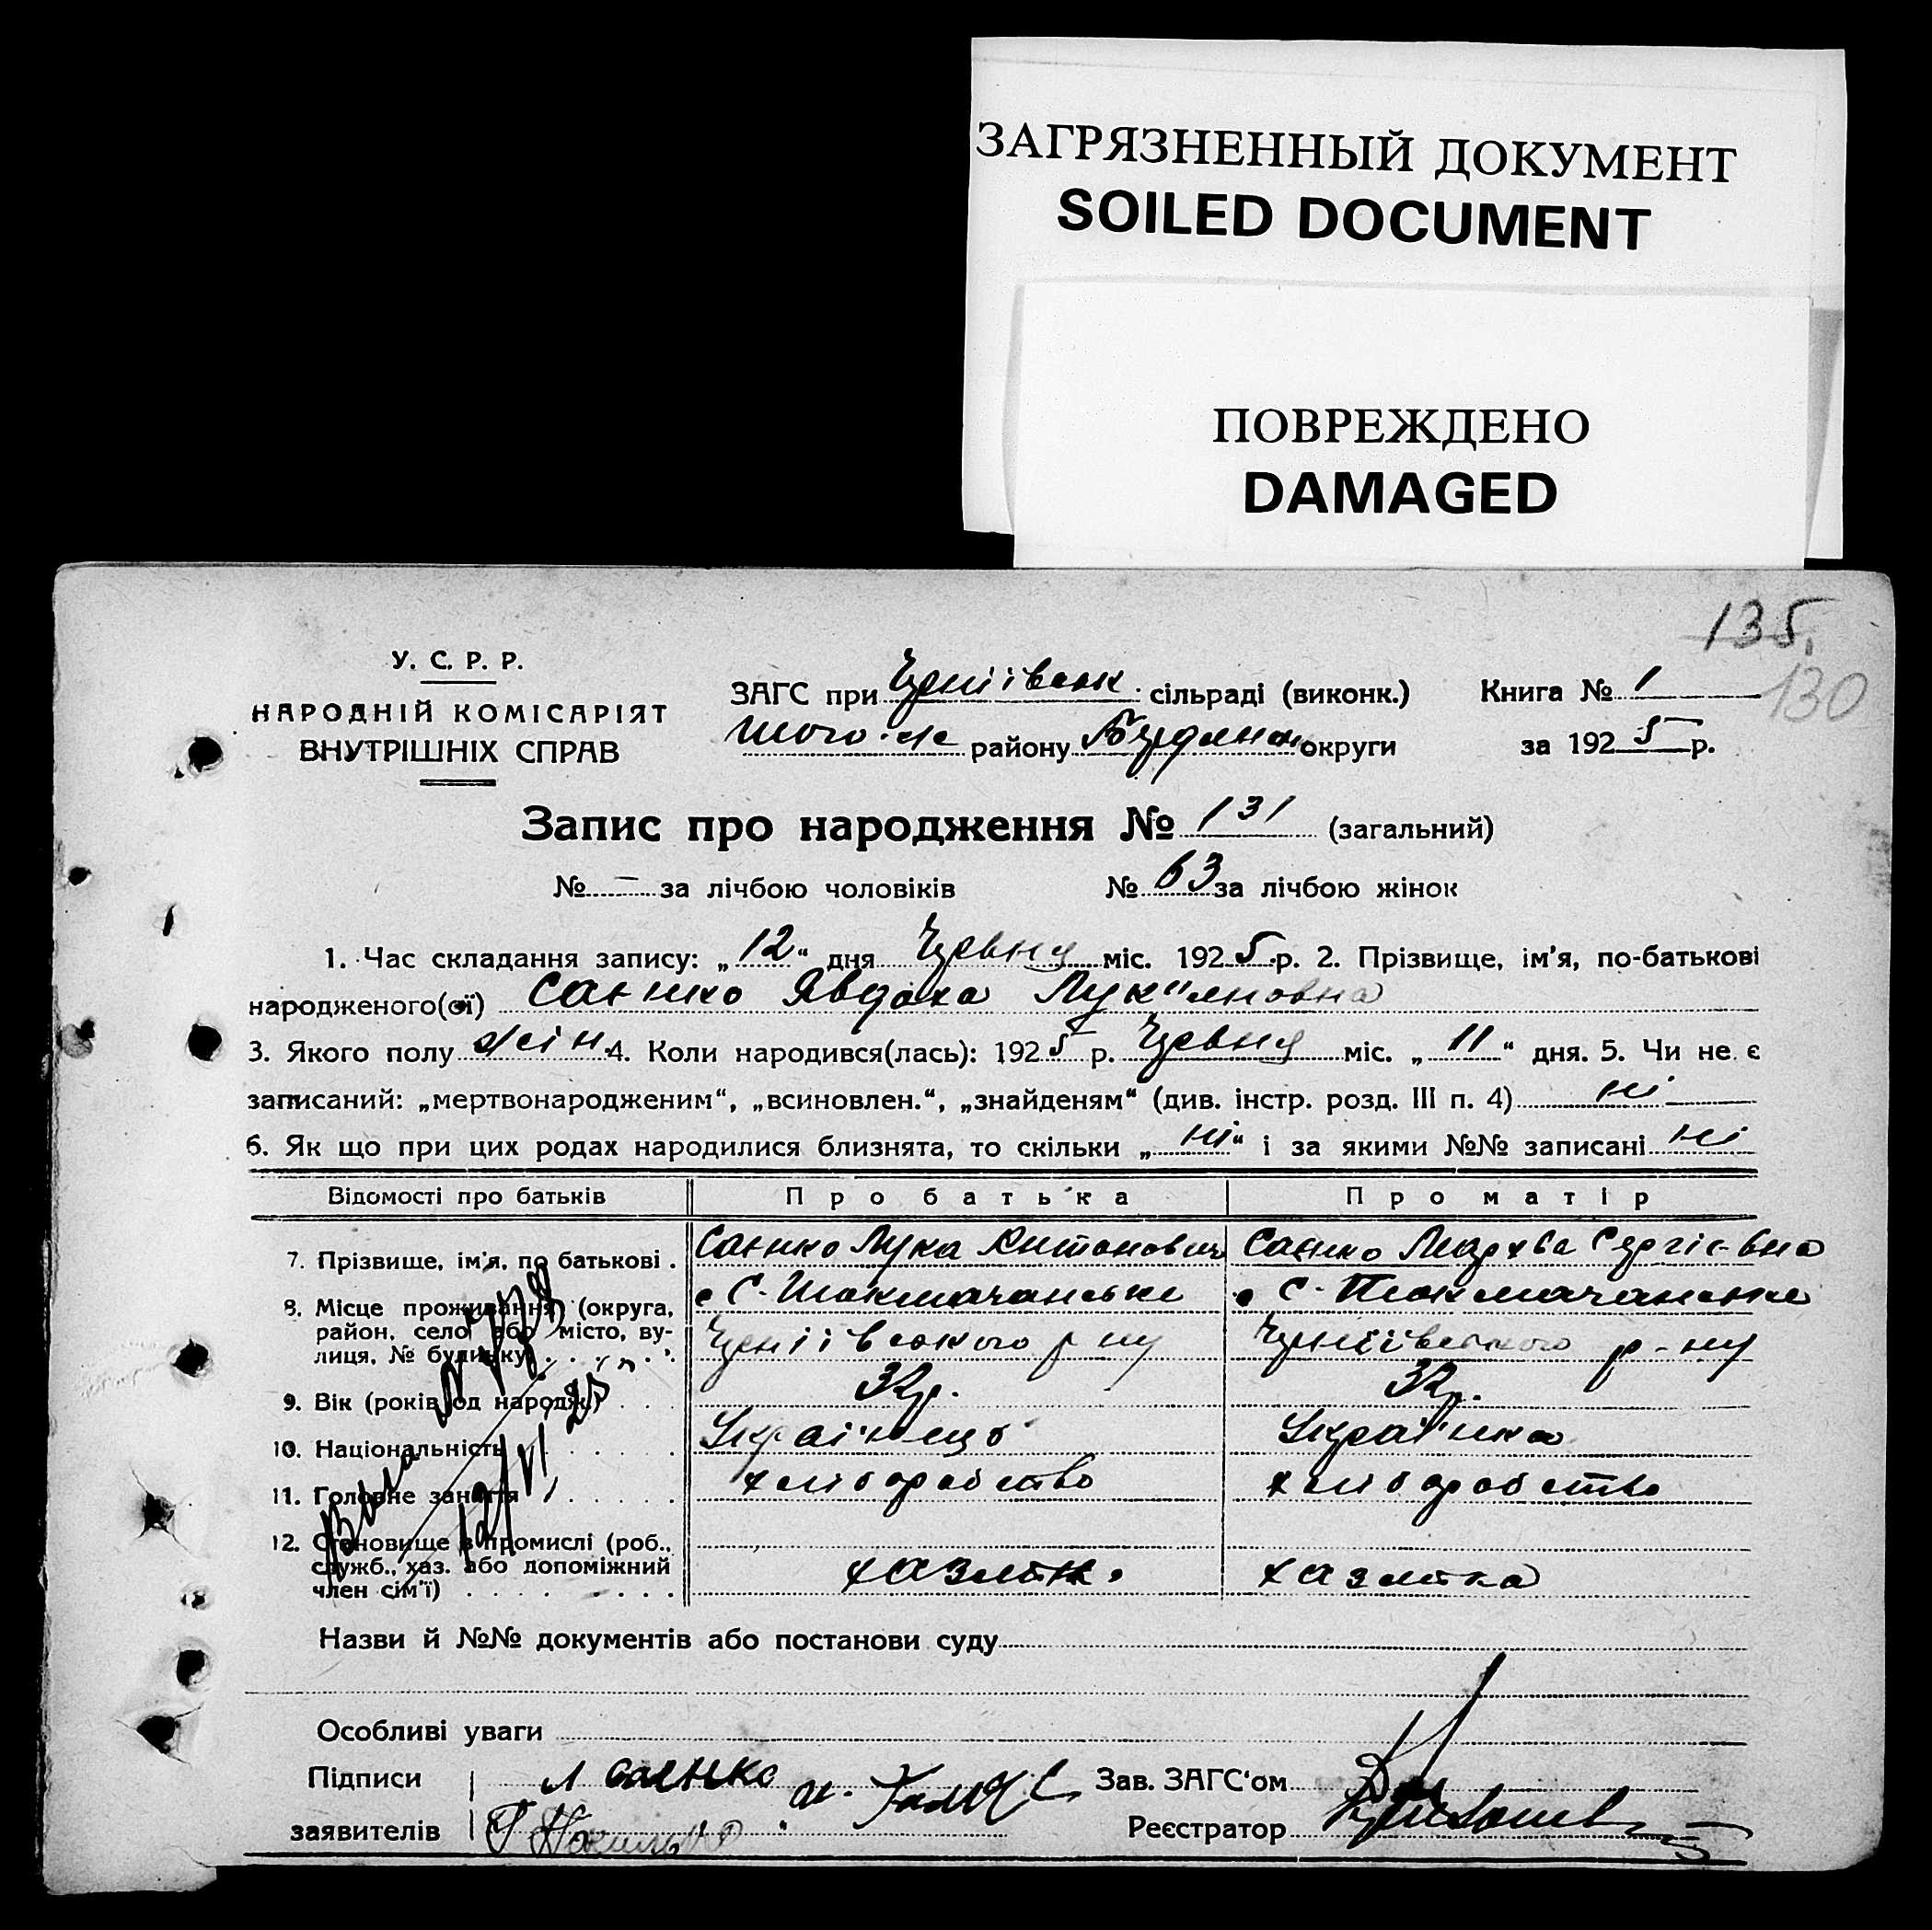 ЗАГРЯЗНЕННЫЙ ДОКУМЕНТ
SOILED DOCUMENT
ПОВРЕЖДЕНО
DAMAGED
135.
130
У. С. Р. Р.
НАРОДНІЙ КОМІСАРІЯТ
ВНУТРІШНІХ СПРАВ
ЗАГС при сільраді (виконк.)
Книга № 1
того-же району округи
за 1925 р.
Запис про народження № 131 (загальний)
№ – за лічбою чоловіків
№ 63 за лічбою жінок
1. Час складання запису: „12“ дня Червня міс. 1925 р. 2. Прізвище, ім'я, по-батькові
народженого(ої) Саєнко Явдоха Лук"яновна
3. Якого полу жін. 4. Коли народився(лась): 1925 р. Червня міс. „11“ дня. 5. Чи не є
записаний: „мертвонародженим“, „всиновлен.“, „знайденям“ (див. інстр. розд. III п. 4) ні
6. Як що при цих родах народилися близнята, то скільки „ні“ і за якими №№ записані ні
Відомості про батьків
Про батька
Про матір
7. Прізвище, ім'я, по батькові .
Саєнко Лука Антонович
Саєнко Мархва Сергієвна
8. Місце проживання (округа,
район, село або місто, ву-
лиця, № будинку) . . . . .
с. Токмачанське
р ну
с. Токмачанське
р-ну
9. Вік (років од народж.) . . .
32 р.
32 р.
10. Національність . . . . .
Українець
Українка
11. Головне заняття . . . . .
хліборобство
хліборобство
12. Становище в промислі (роб.,
служб., хаз. або допоміжний
член сім'ї) . . . . . . . .
хазяїн.
хазяйка
12/VI 25
Назви й №№ документів або постанови суду
Особливі уваги
Підписи
заявителів
Л Саєнко
Зав. ЗАГС'ом
Реєстратор